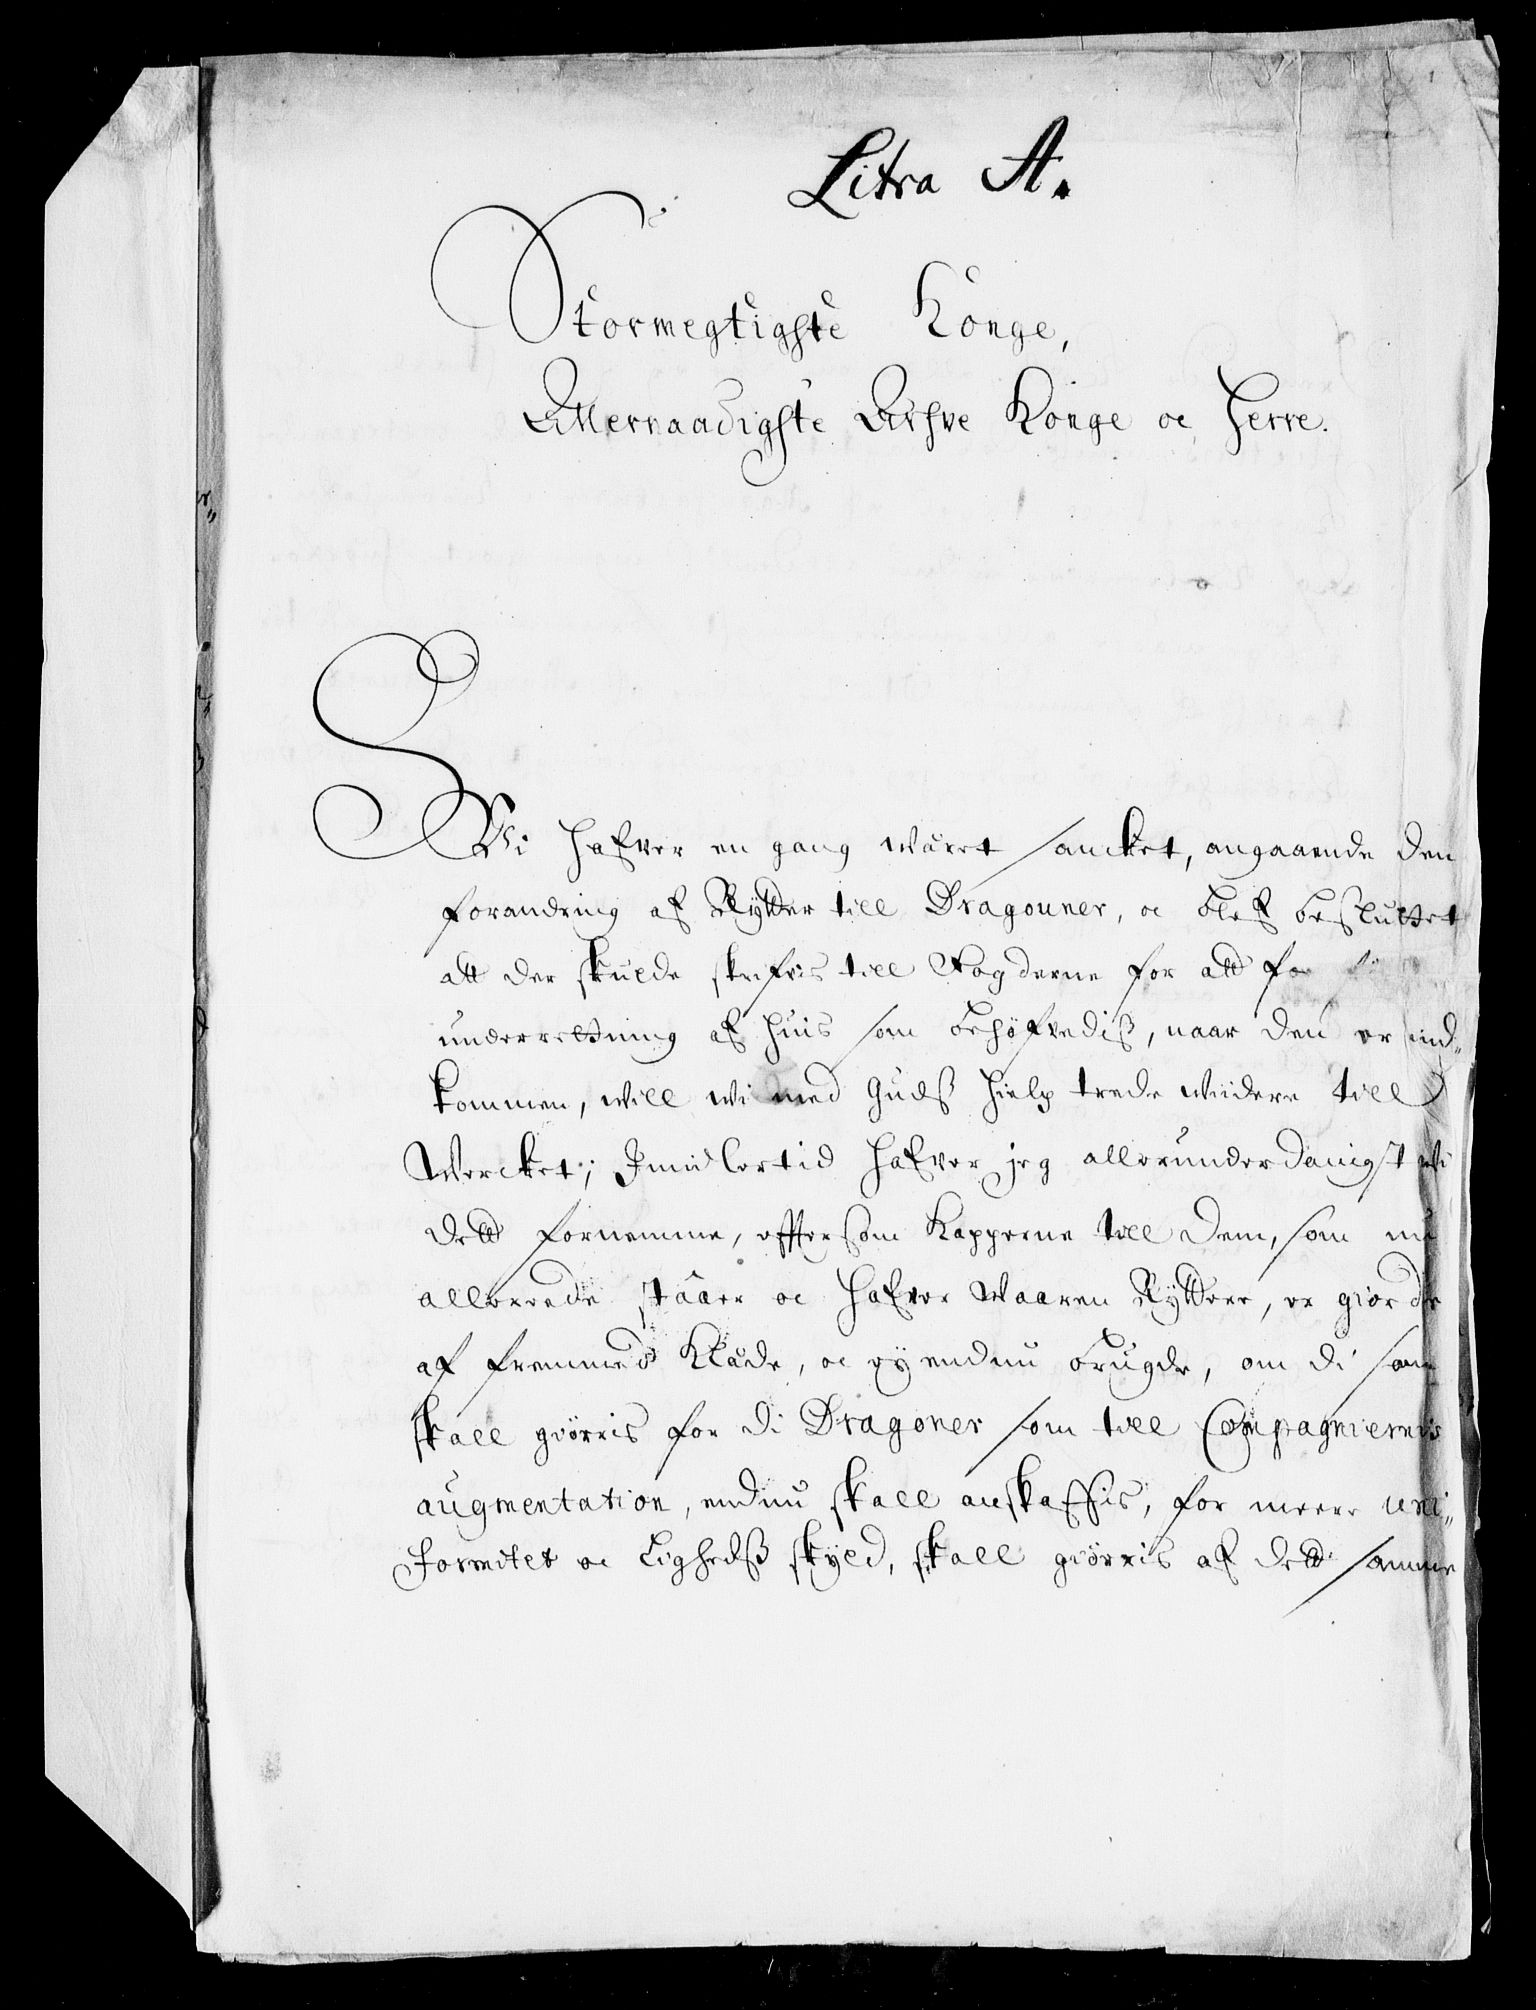 Litra A.
Stormegtigste Konge,
Allernaadigste Arfve Konge oc Herre.
Wi hafver en gang wäret samket, angaaende den
forandring af Rytter till Dragouner, oc blef besluttet
att der skulde skrifvis till Fogderne for att faa
underrettning af huis som behøfvediß, naar den er ind„
kommen, will wi med Gudß hielp trede widere till
Wercket; Imidlertid hafver jeg allerunderdanigst wi
dett fornemme, efftersom Kapperne till dem, som nu
allerrede stäaer oc hafver waaren Ryttere, er giorde
af fremmed Kläde, oc ey endnu brugde, om di som
skall giørris for di Dragoner som till Compagniernis
augmentation, endnu skall anskaffis, for meere uni„
formitet oc Lighedß skyld, skall giørris af dett samme